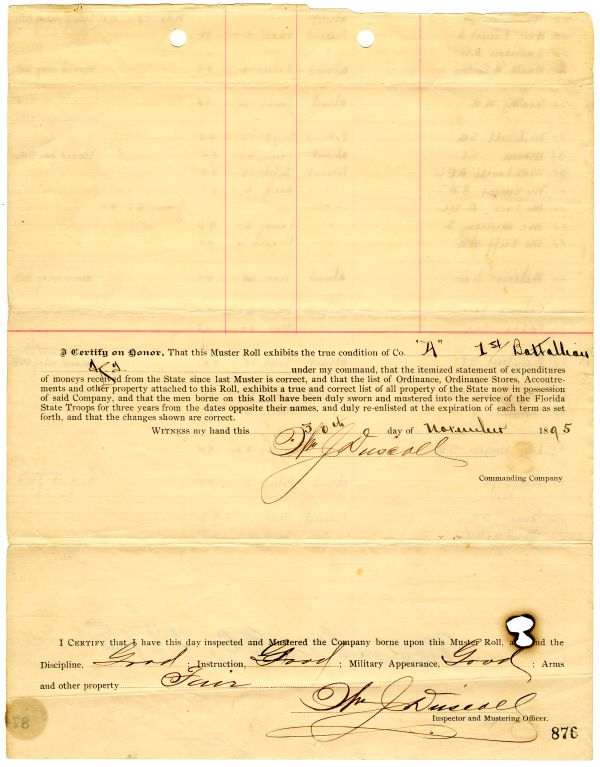 I Certify on Honor, That this Muster Roll exhibits the true condition of Co. "A" 1st Battallion
under my command, that the itemized statement of expenditures
of moneys received from the State since last Muster is correct, and that the list of Ordinance, Ordinance Stores, Accoutre-
ments and other property attached to this Roll, exhibits a true and correct list of all property of the State now in possession
of said Company, and that the men borne on this Roll have been duly sworn and mustered into the service of the Florida
State Troops for three years from the dates opposite their names, and duly re-enlisted at the expiration of each term as set
forth, and that the changes shown are correct.
WITNESS my hand this 30th day of November 1895
Wm J Driscoll
Commanding Company.
I CERTIFY that I have this day inspected and Mustered the Company borne upon this Muster Roll, and the
Discipline, Good Instruction, Good; Military Appearance, Good; Arms
and other property Fair
Wm J Driscoll
Inspector and Mustering Officer.
876